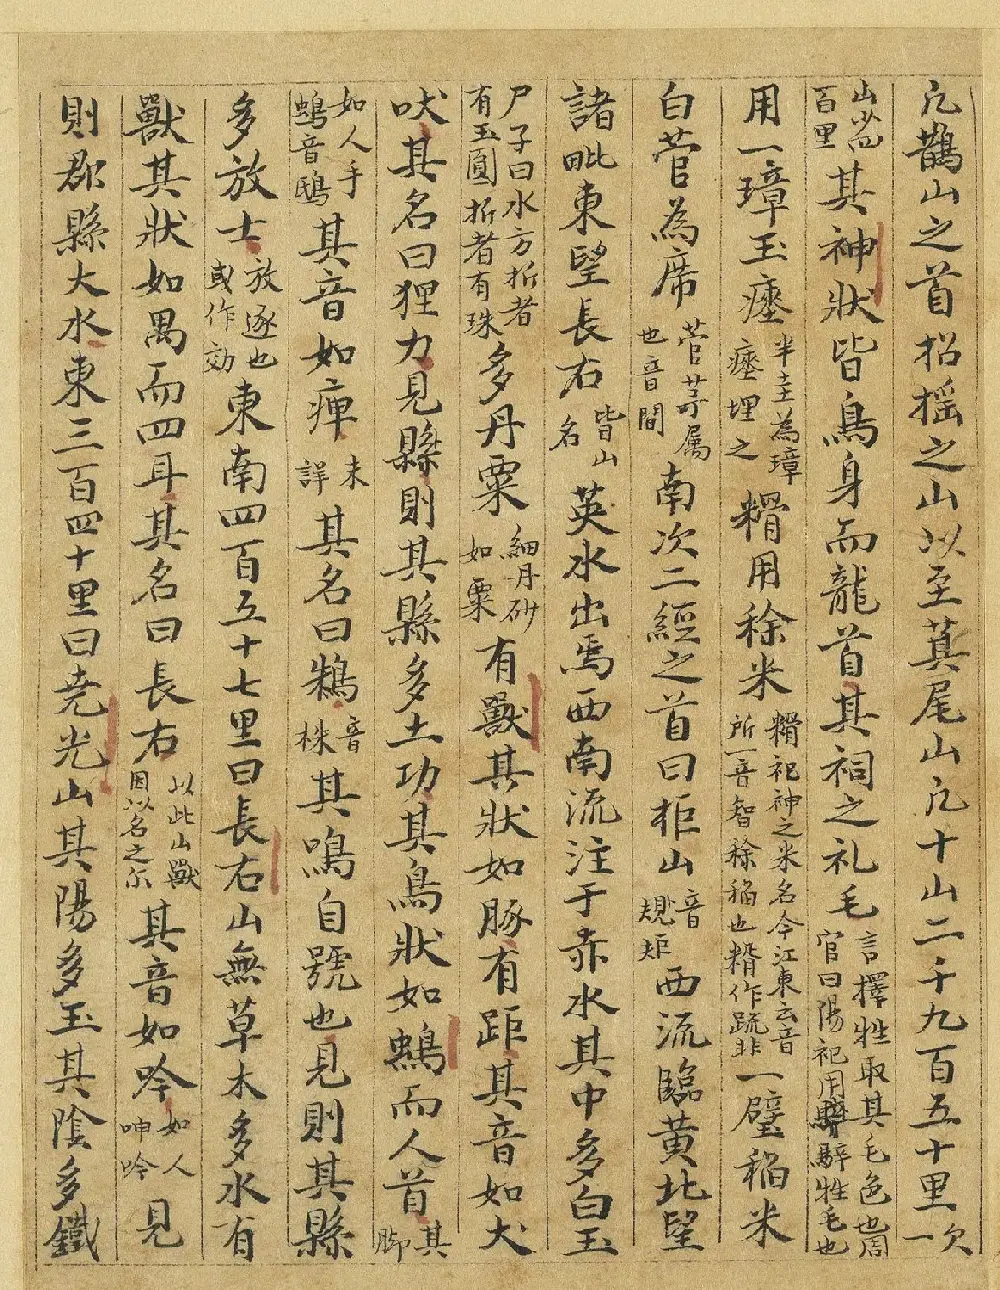 凢鵲山之首招揺之山以至萁尾山凢十山二千九百五十里一次
山少四百里其神狀皆鳥身而龍首其祠之礼毛言擇牲取其毛色也周官曰陽祀用騂牲毛也
用一璋玉瘞半圭為璋瘞埋之糈用稌米糈祀神之米名今江東云音所一音智稌稲也糈作疏非一璧稲米
白菅為席菅茅属也音間南次二經之首曰柜山音規矩西流臨黄北望
諸毗東望長右皆山名英水出焉西南流注于赤水其中多白玉
尸子曰水方折者有玉圓折者有珠多丹粟細丹砂如粟有獸其狀如豚有距其音如犬
吠其名曰狸力見縣則其縣多土功其鳥狀如鴟而人首其脚
如人手鴟音鴟其音如痺未詳其名曰鴸音株其鳴自號也見則其縣
多放士放逐也或作効東南四百五十七里曰長右山無草木多水有
獸其狀如禺而四耳其名曰長右以此山獸因以名之尓其音如吟如人呻吟見
則郡縣大水東三百四十里曰尭光山其陽多玉其陰多鐵